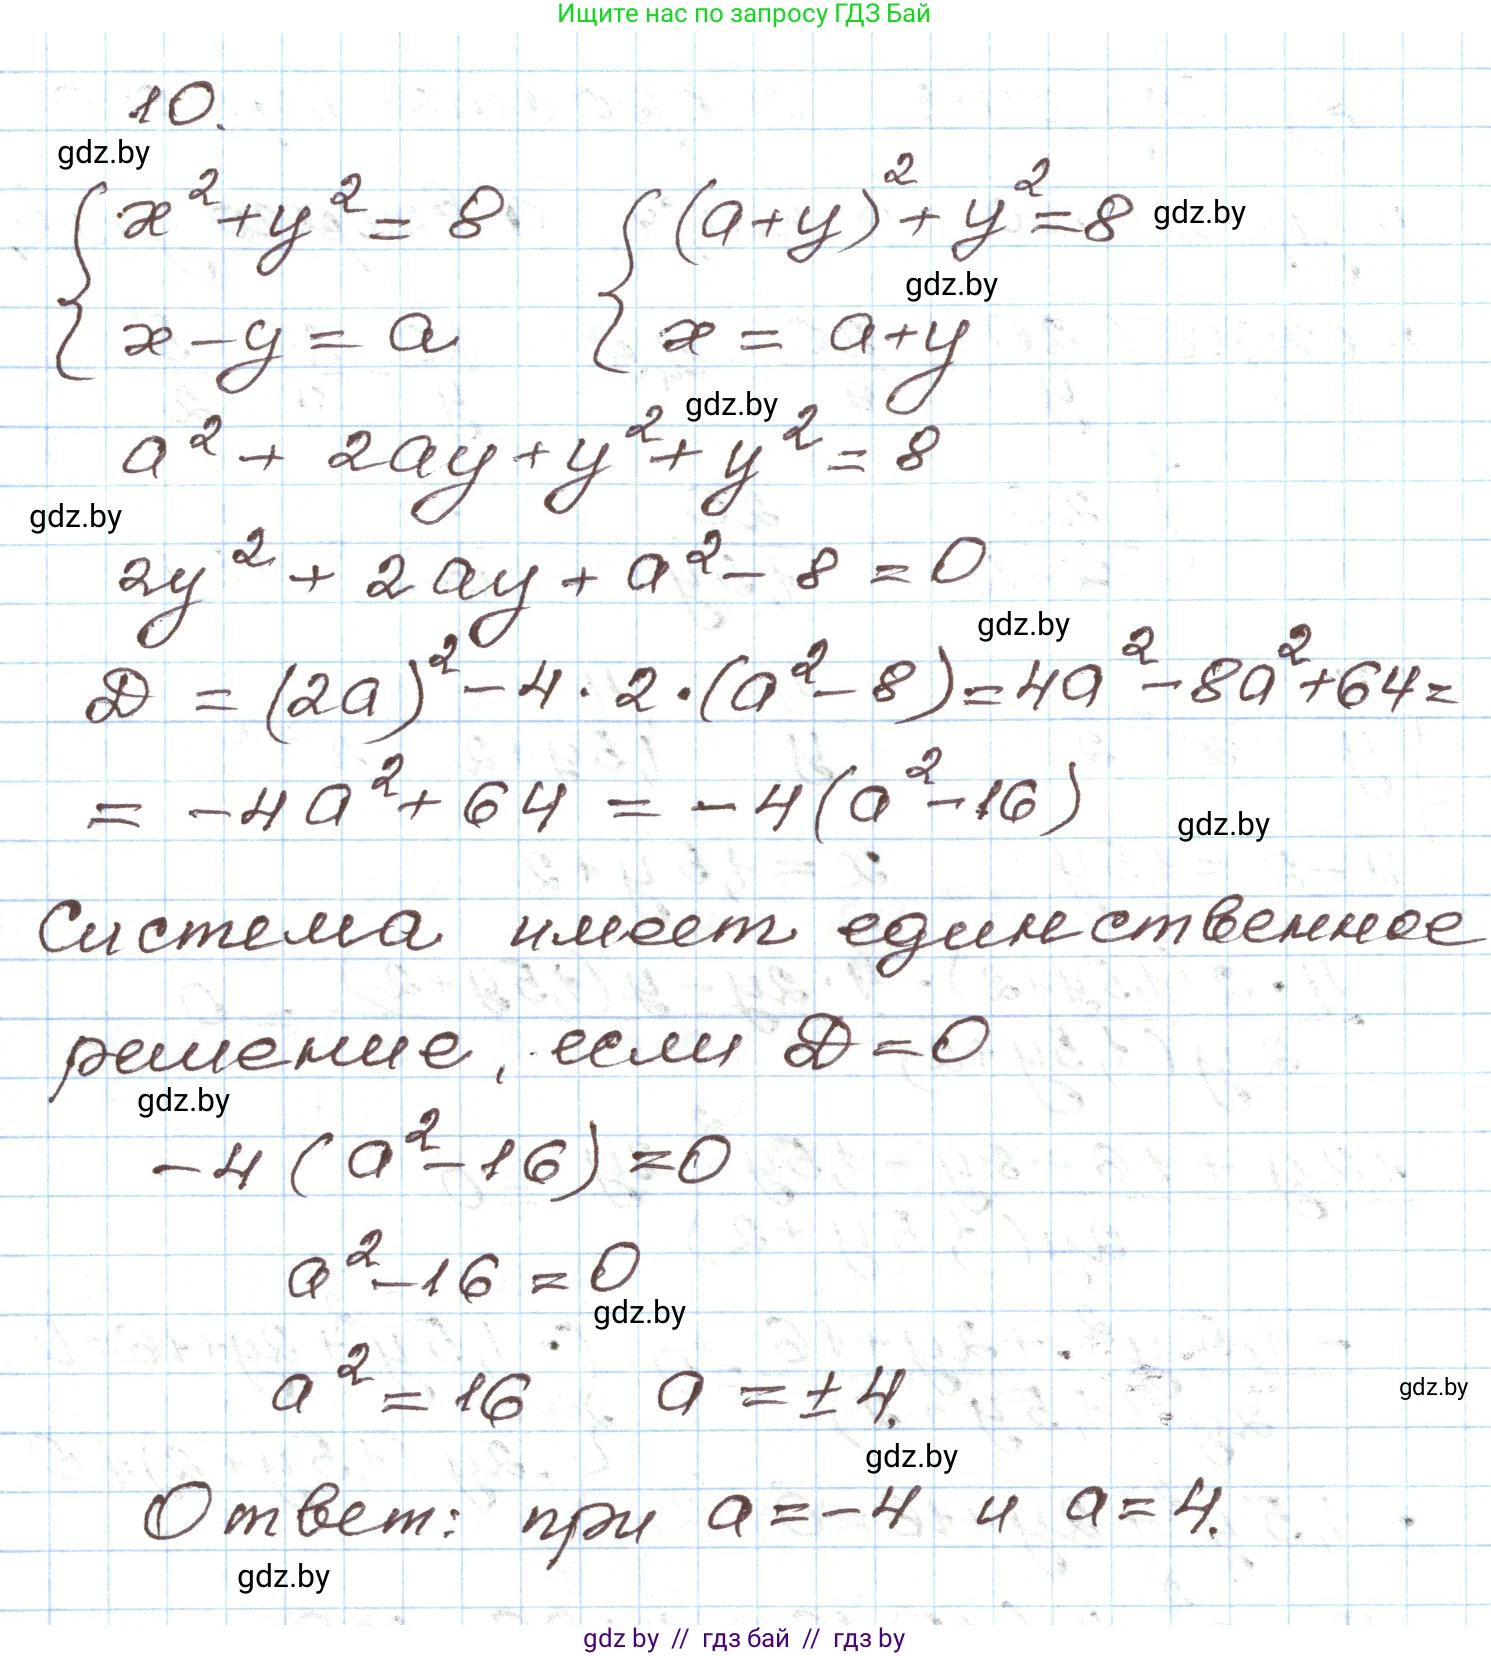 Ищите нас по запросу ГДЗ Бай
10.
gdz.by
{ x² + y² = 8 { (a+y)² + y² = 8 gdz.by
gdz.by
x - y = a x = a+y
gdz.by
a² + 2ay + y² + y² = 8
gdz.by
2y² + 2ay + a² - 8 = 0
gdz.by
D = (2a)² - 4 · 2 · (a² - 8) = 4a² - 8a² + 64 =
= -4a² + 64 = -4(a² - 16)
gdz.by
Система имеет единственное
решение, если D = 0
gdz.by
-4(a² - 16) = 0
a² - 16 = 0
gdz.by
a² = 16 a = ±4.
gdz.by
gdz.by
Ответ: при a = -4 и a = 4.
gdz.by
gdz by // гдз бай // гдз by